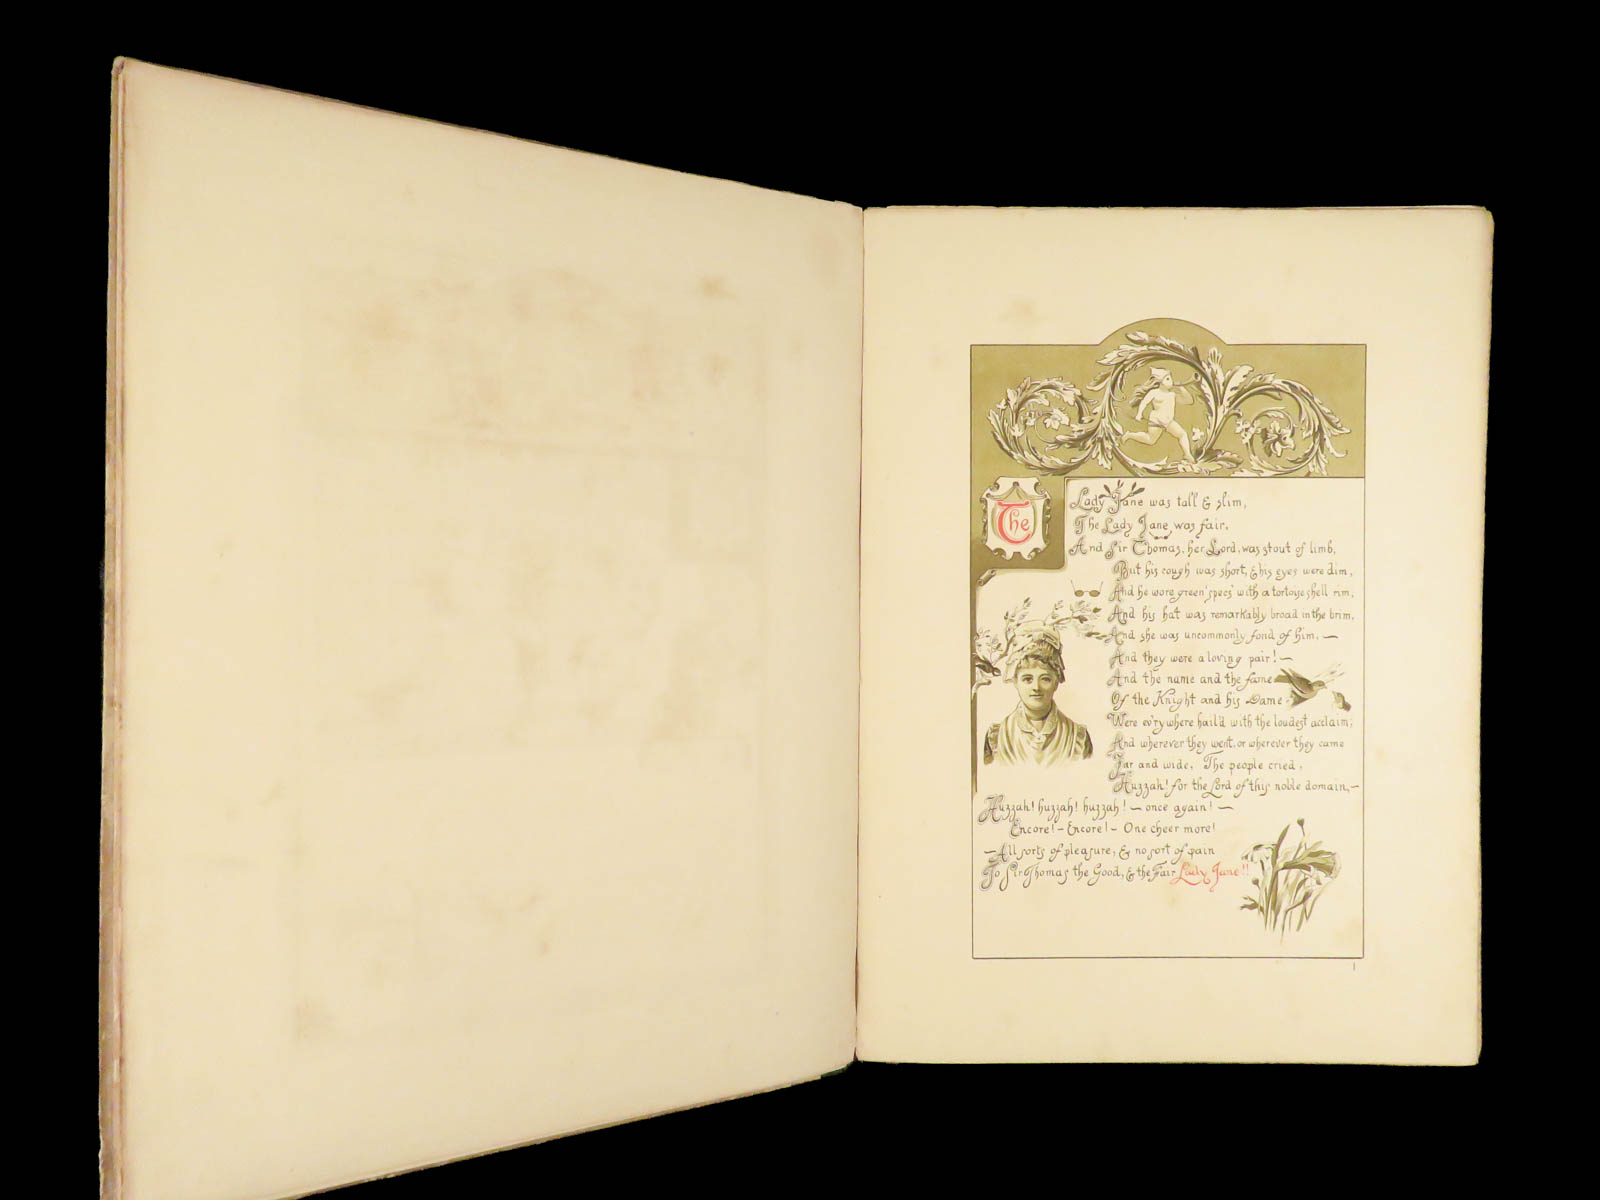 The Lady Jane was tall & slim,
The Lady Jane was fair,
And Sir Thomas, her Lord, was stout of limb,
But his cough was short, & his eyes were dim,
And he wore green 'specs' with a tortoise shell rim,
And his hat was remarkably broad in the brim,
And she was uncommonly fond of him, —
And they were a loving pair! —
And the name and the fame
Of the Knight and his Dame
Were ev'ry where hail'd with the loudest acclaim;
And wherever they went, or wherever they came
Far and wide, The people cried,
Huzzah! for the Lord of this noble domain, —
Huzzah! huzzah! huzzah! — once again! —
Encore! — Encore! — One cheer more!
— All sorts of pleasure, & no sort of pain
To Sir Thomas the Good, & the Fair Lady Jane!!
1